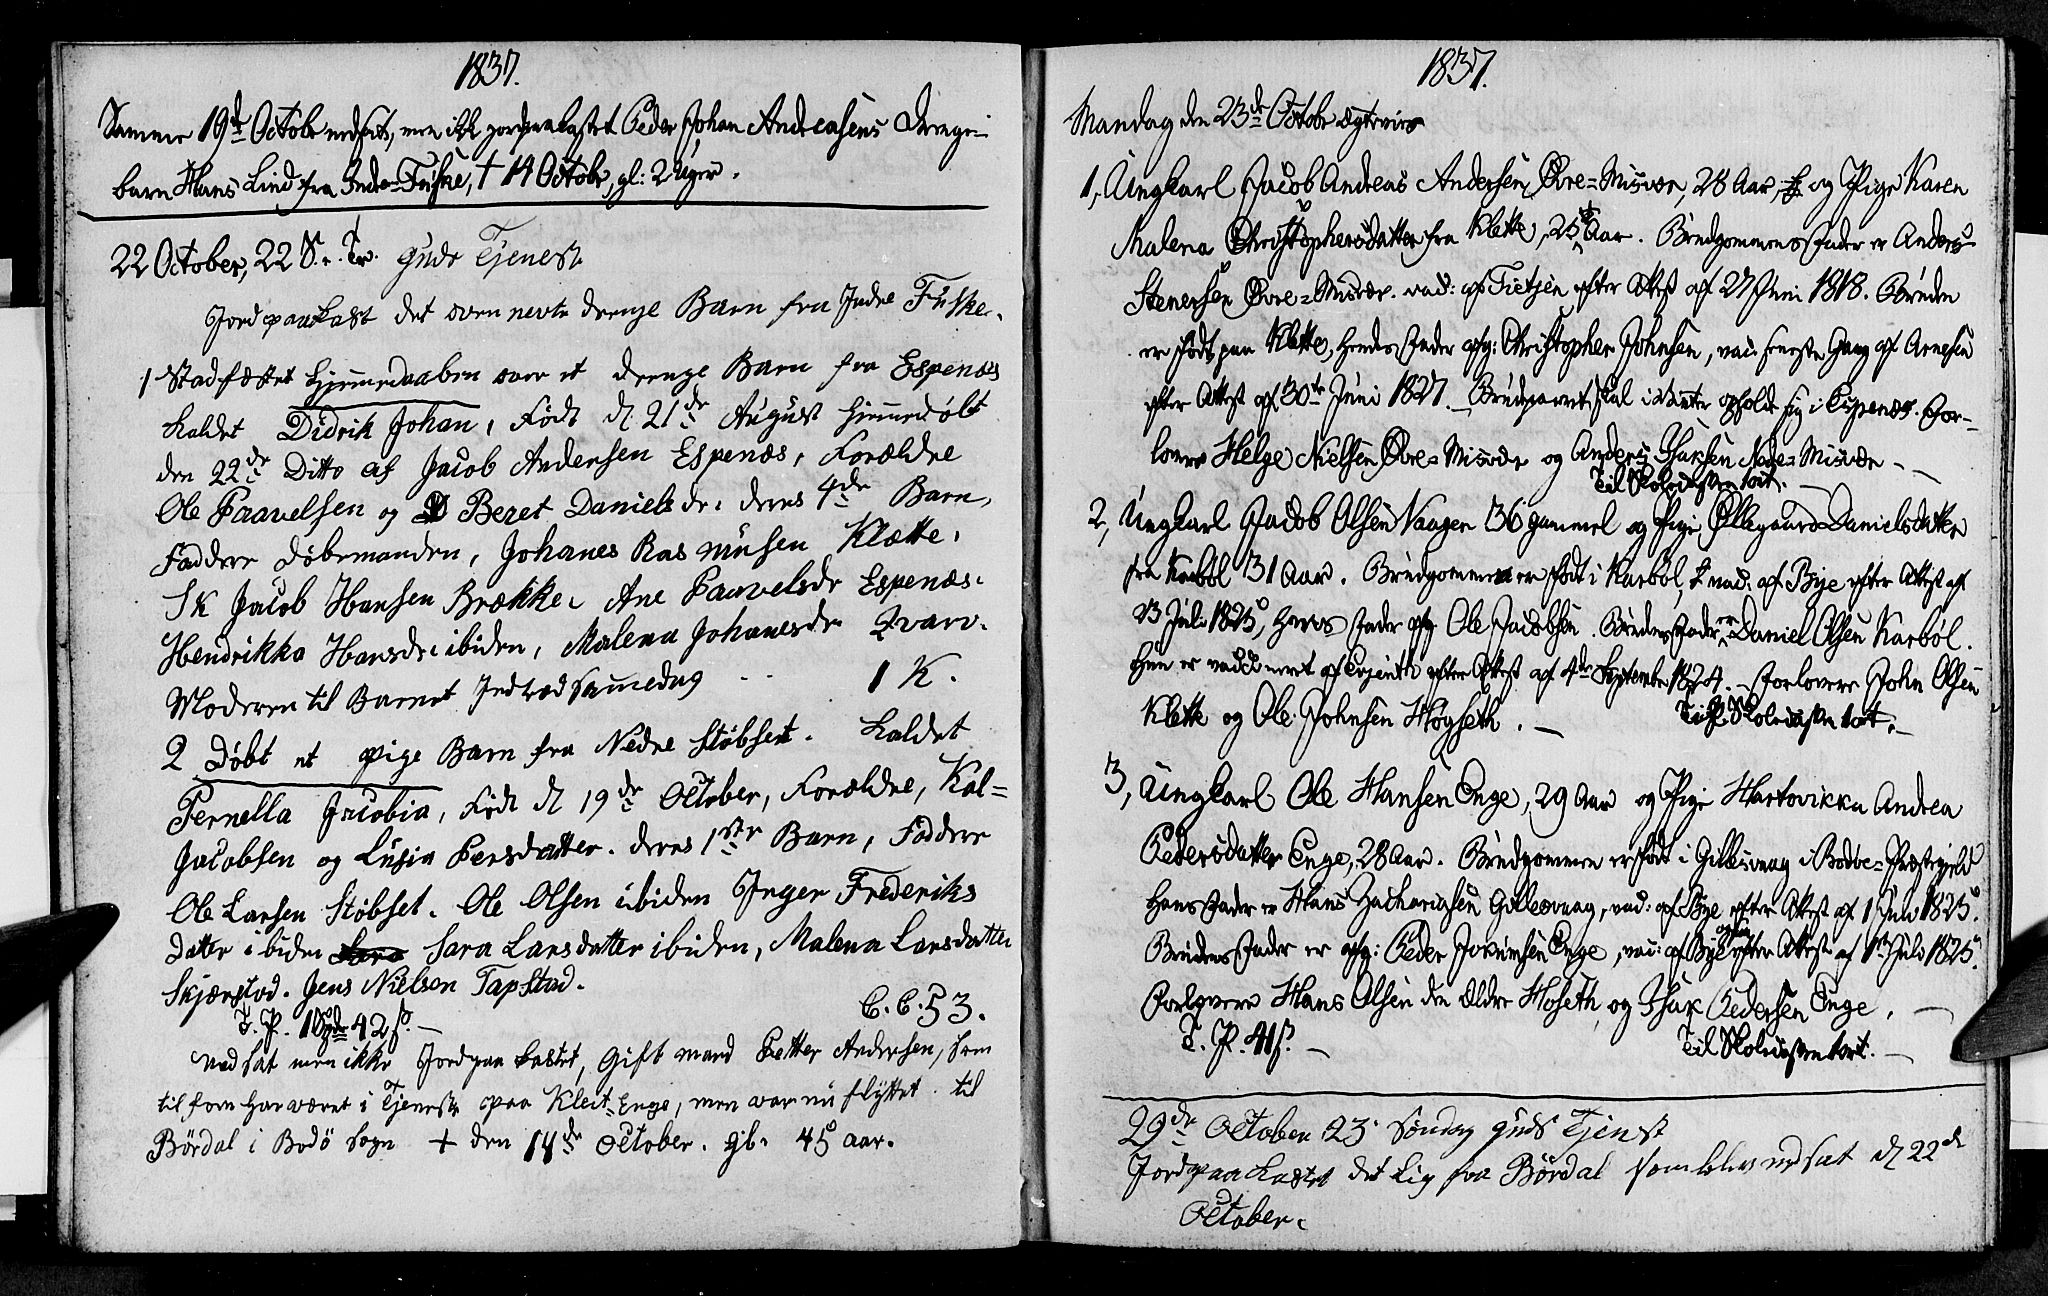 1837.
Samme 19de Octobr nedsat, men ikke jordpaakastet Peder Johan Andreasens Drenge-
barn Hans Lind fra Indre-Fuske, † 14 Octobr, gl: 2 Uger.
22 October, 22 S. e. Tr. Guds Tjenest
Jordpaakast det oven nevte drenge Barn fra Indre Fuske.
1 Stadfæstet Hjemmedaaben over et drenge Barn fra Espenæs
kaldet Didrik Johan, Født d. 21de August Hjemmedøbt
den 22de Ditto af Jacob Andersen Espenæs, Forældre
Ole Paavelsen og Beret Danielsdr: deres 4de Barn,
Faddere Døbemanden, Johanes Rasmusen Klætte.
SK Jacob Hansen Brække, Ane Paavelsdr Espenæs.
Hendrikka Hansdr: ibiden, Malena Johanesdr Qvarv.
Moderen til Barnet Indtræd sammedag - - 1 K.
2 Døbt et pige Barn fra Nedre Støbset. kaldet
Pernella Jacobia, Født d 19de October, Forældre, Kal=
Jacobsen og Lusia Persdatter. deres 1ste Barn, Faddere
Ole Larsen Støbset. Ole Olsen ibiden Inger Frederiks
datter ibiden Sara Larsdatter ibiden, Malena Larsdatter
Skjærstad. Jens Nielsen Tapstad.
C. C. 53.
T. P. 1 Spdr 42 s. —
Ned sat men ikke Jordpaa kastet, Gift mand Petter Andersen, som
til forn har været i Tjeneste paa Kleit-Enge, men var nu flyttet til
Børdal i Bodö sogn + den 14de October. gl: 45 aar.
1837.
Mandag den 23de Octobr ægteviet
1, Ungkarl Jacob Andreas Andersen Øvre=Misvær, 28 Aar, og Pige Karen
Malena Christophersdatter fra Klette, 25 Aar. Brudgommens Fader er Anders
Stenersen Øvre=Misvær. vac: af Tietjen efter Attest af 27 Juni 1818. Bruden
er født paa Klette, hendes Fader afg: Christopher Johnsen, vac: seneste Gang af Arnesen
efter Attest af 30te Juni 1827. Brudeparret skal i Vinter opholde sig i Espenæs. For-
lovere Helge Nielsen Øvre=Misvær og Anders Isaksen Nedre=Misvær - -
Til Skolecassen 1 ort. —
2, Ungkarl Jacob Olsen Vaagen 36 gammel og Pige Øllegaard Danielsdatter
fra Karbøl 31 Aar. Brudgommen er født i Karbøl, vac: af Bye efter Attest af
23 Juli 1825, Hans Fader afg: Ole Jacobsen. Brudens Fader er Daniel Olsen Karbøl.
Hun er vaccineret af Erzenth efter Attest af 4de Septembr 1824. Forlovere John Olsen
Klette og Ole Johnsen Høgseth. —
Til Skolecassen 1 ort. —
3, Ungkarl Ole Hansen Enge, 29 Aar og Pige Hartvikka Andrea
Pedersdatter Enge, 28 Aar. Brudgommen er født i Gillesvaag i Bodøe=Præstegield
Hans Fader er Hans Zachariasen Gillesvaag, vac: af Bye efter Attest af 1 Juli 1825.
Brudens Fader er afg: Peder Joramsen Enge, vac: af Bye efter Attest af 1ste Juli 1825.
Forlovere Hans Olsen den Ældre Hoseth, og Isak Pedersen Enge. —
T. P. 41 s. —
Til Skolecassen 1 ort. —
29de October 23. Søndag Guds Tjenst
Jordpaa kastet det Lig fra Børdal som blev nedsat d 22de
October.